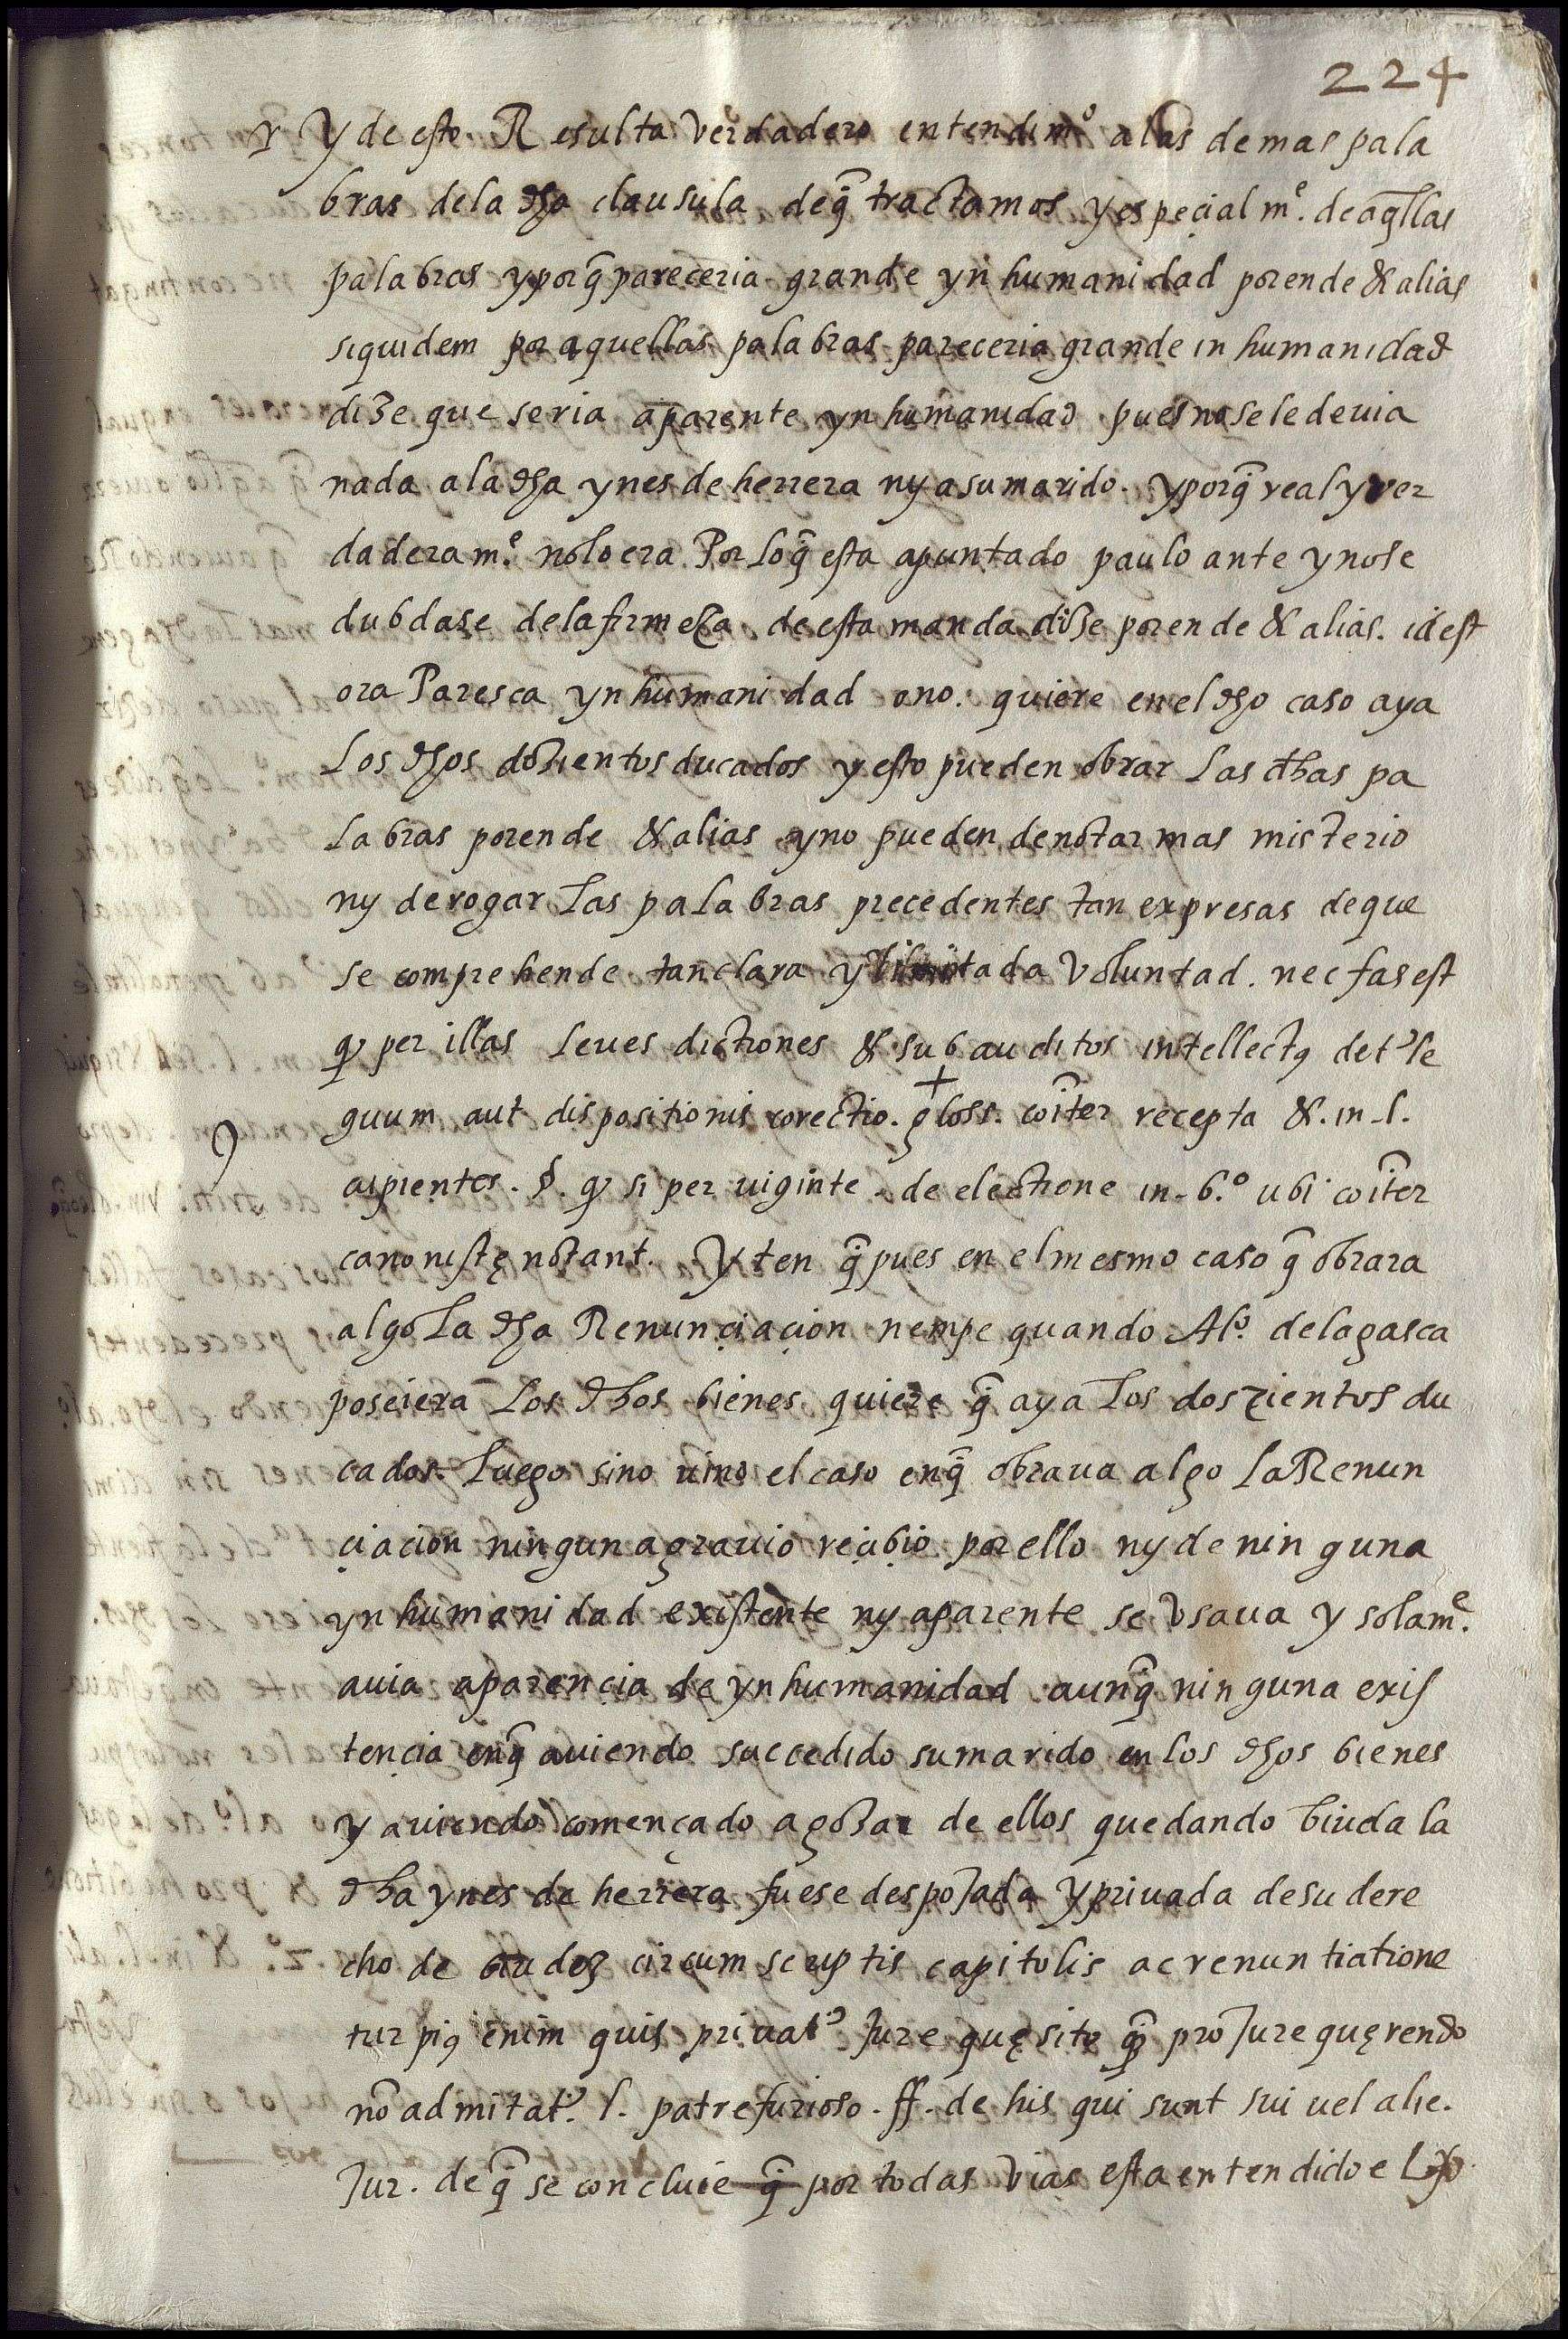 224
Y de esto Resulta verdadero entendimº a las demas pala
bras dela dha clausula deq̃ tractamos y especialmᵉ. de aq̃llas
palabras y porq̃ pareceria grande ynhumanidad porende & alias
siquidem por aquellas palabras pareceria grande inhumanidad
dize que seria aparente ynhumanidad pues no se le deuia
nada a la dha ynes de herrera ny a su marido. y porq̃ real y ver
daderamᵉ. no lo era Por loq̃ esta apuntado paulo ante y no se
dubdase dela firmeza de esta manda dize porende & alias. id est
ora Paresca ynhumanidad ono. quiere en el dho caso aya
Los dhos dozientos ducados y esto pueden obrar Las dhas pa
labras porende & alias y no pueden denotar mas misterio
ny derogar las palabras precedentes tan expresas de que
se comprehende tan clara y limitada voluntad. nec fas est
ꝙ per illas leues dictiones & subauditos intellectꝰ detʳ le
guum aut dispositionis corectio. gloss. coīter recepta &. in. l.
cupientes. §. ꝙ si per uiginte. de electione in. 6.º ubi coīter
canonistę notant. Yten q̃ pues en el mesmo caso q̃ obrara
algo La dha Renunçiaçion nempe quando Alº. dela gasca
poseiera Los dhos bienes quiere q̃ aya Los dozientos du
cados. Luego sino uino el caso enq̃ obraua algo La Renun
çiaçion ningun agrauio reçibio por ello ny de ninguna
ynhumanidad existente ny aparente se vsaua y solamᵉ.
auia aparençia de ynhumanidad aunq̃ ninguna exis
tençia enq̃ auiendo succedido su marido en los dhos bienes
y auiendo començado a gozar de ellos quedando biuda la
dha ynes de herrera fuese despojada y priuada de su dere
cho de circumscriptis capitulis ac renuntiatione
turpiꝰ enim quis priuatʳ Jure quęsito q̃ pro Jure quęrendo
nō admitatʳ. l. patre furioso. ff. de his qui sunt sui uel alie.
Jur. de q̃ se concluie q̃ por todas vias esta entendido e